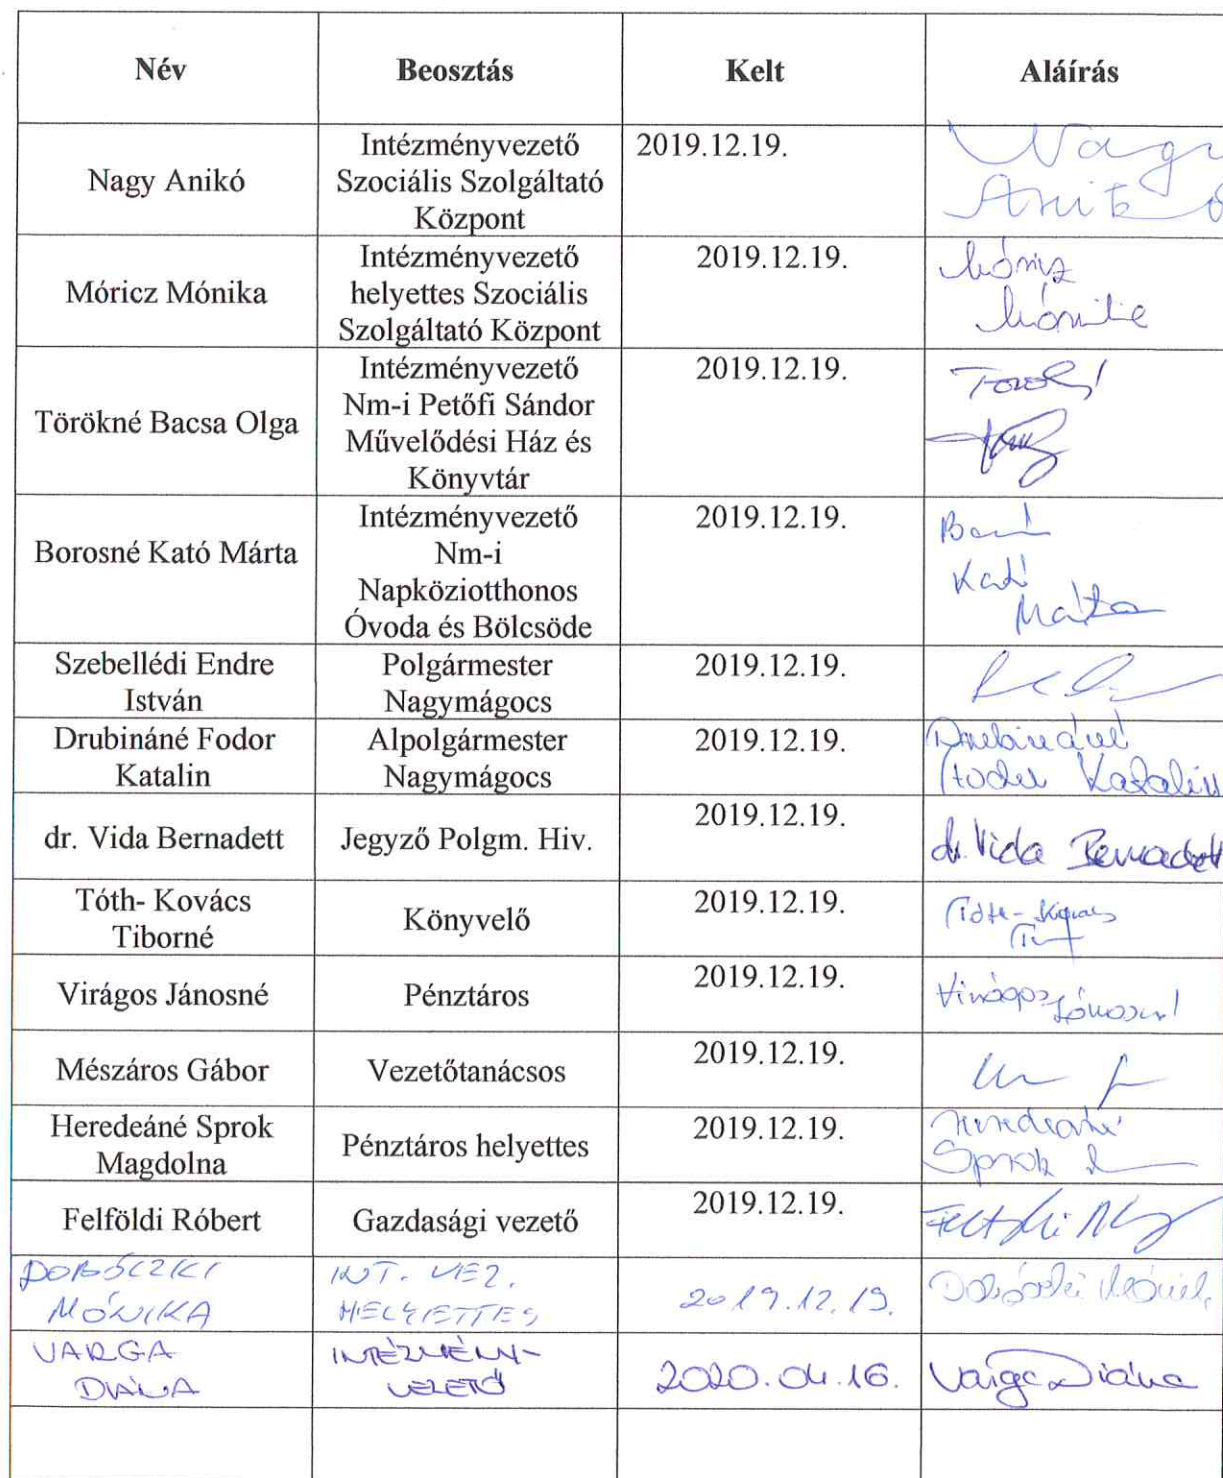 Név Beosztás Kelt Aláírás
Nagy Anikó
Intézményvezető
Szociális Szolgáltató
Központ
2019.12.19.
Nagy
Anikó
Móricz Mónika
Intézményvezető
helyettes Szociális
Szolgáltató Központ
2019.12.19.
Móricz
Mónika
Törökné Bacsa Olga
Intézményvezető
Nm-i Petőfi Sándor
Művelődési Ház és
Könyvtár
2019.12.19.
Borosné Kató Márta
Intézményvezető
Nm-i
Napköziotthonos
Óvoda és Bölcsöde
2019.12.19.
Kató
Márta
Szebellédi Endre
István
Polgármester
Nagymágocs
2019.12.19.
Drubináné Fodor
Katalin
Alpolgármester
Nagymágocs
2019.12.19.
Drubináné
Fodor Katalin
dr. Vida Bernadett
Jegyző Polgm. Hiv.
2019.12.19.
dr. Vida Bernadett
Tóth- Kovács
Tiborné
Könyvelő
2019.12.19.
Tóth-Kovács
Virágos Jánosné
Pénztáros
2019.12.19.
Virágos Jánosné
Mészáros Gábor
Vezetőtanácsos
2019.12.19.
Heredeáné Sprok
Magdolna
Pénztáros helyettes
2019.12.19.
Heredeáné
Sprok
Felföldi Róbert
Gazdasági vezető
2019.12.19.
DOBÓCZKI
MÓNIKA
INT. VEZ.
HELYETTES
2019.12.19.
Dobóczki Mónika
VARGA
DIÁNA
INTÉZMÉNY-
VEZETŐ
2020.04.16.
Varga Diána